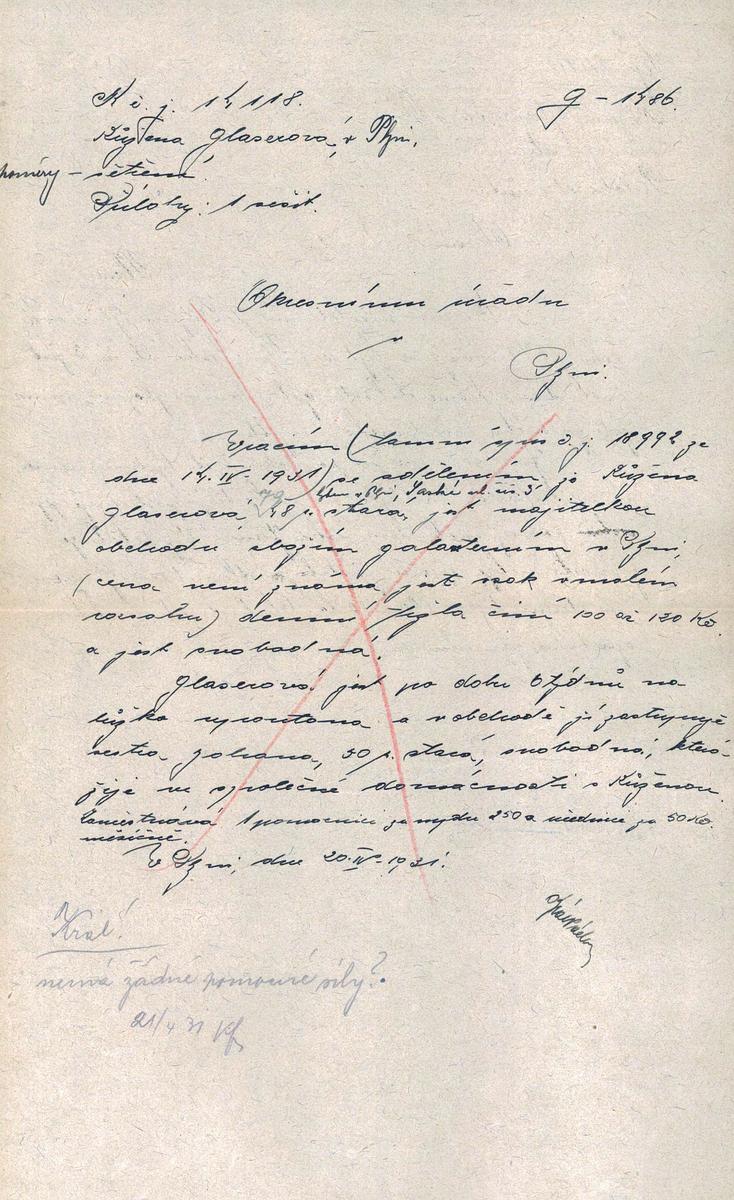 K č. j. 14118. G - 1486.
Růžena Glaserová, v Plzni,
poměry - šetření.
Přílohy: 1 sešit.
Okresnímu úřadu
v
Plzni.
Vracím (tamní spis č. j. 18992 ze
dne 14. IV. 1931) se sdělením, že Růžena
bytem v Plzni, Saské ul. čís. 5
Glaserová, 48 r. stará, jest majitelkou
obchodu zbožím galanterním v Plzni,
(cena není známa jest však v malém
rozsahu) denní tržba činí 100 až 120 Kč
a jest svobodná.
Glaserová jest po dobu 6 týdnů na
lůžko upoutána a v obchodě ji zastupuje
sestra Johana, 50 r. stará, svobodná, která
žije ve společné domácnosti s Růženou.
Zaměstnává 1 pomocnici za mzdu 250 a učednici za 50 Kč
měsíčně.
V Plzni, dne 20. IV. 1931.
Král!
nemá žádné pomocné síly?
21/4 31